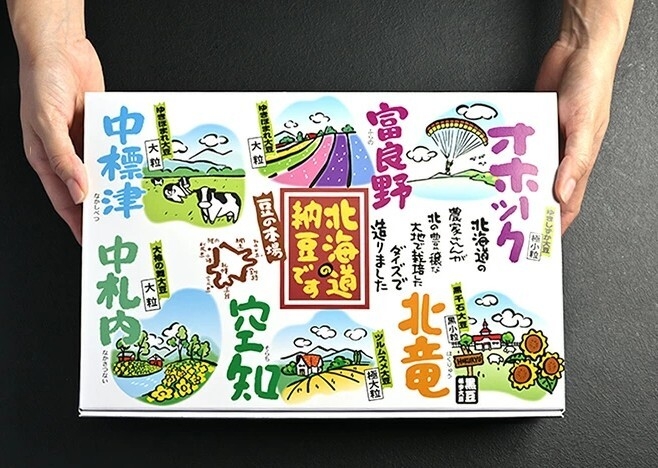 オホーツク
ゆきしずか大豆
極小粒
富良野
ふらの
ゆきほまれ大豆
大粒
中標津
なかしべつ
ゆきほまれ大豆
大粒
北海道の
農家さんが
北の豊穣な
大地で栽培した
ダイズで
造りました
北海道の
納豆です
豆の本場
中札内
なかさつない
大袖の舞大豆
大粒
空知
そらち
ツルムスメ大豆
極大粒
北竜
ほくりゅう
黒千石大豆
黒小粒
HOKURYU
黒豆